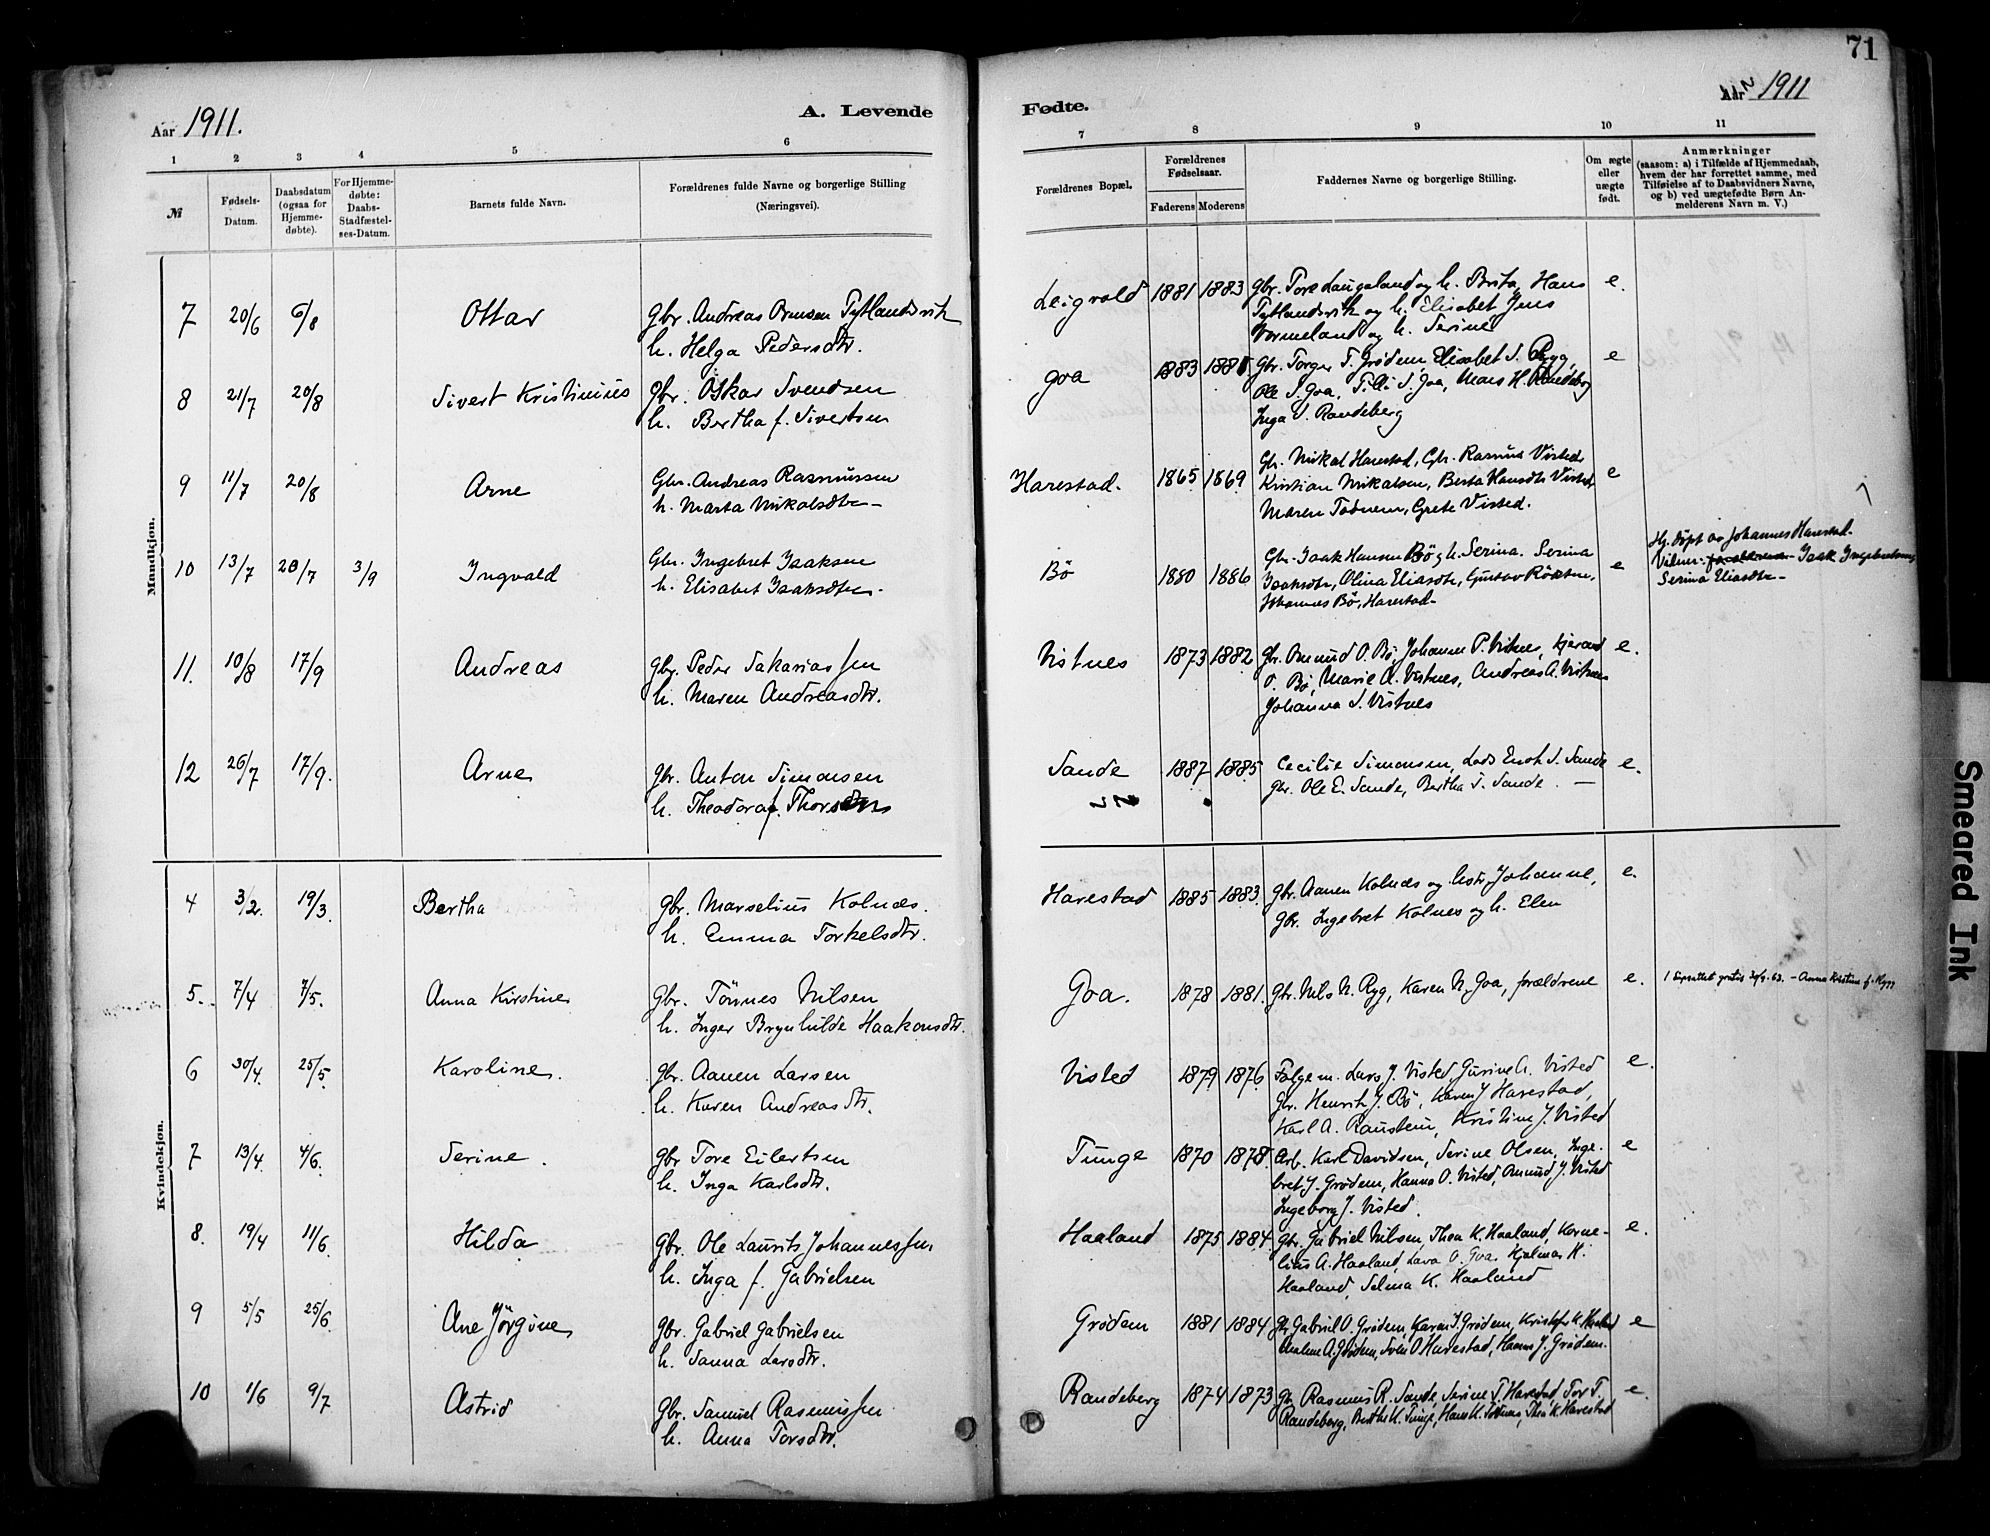 71
Aar 1911.
A. Levende
Fødte.
Aar 1911
1 2 3 4 5 6
7 8 9 10 11
№
Fødsels-
Datum.
Daabsdatum
(ogsaa for
Hjemme-
døbte).
For Hjemme-
døbte:
Daabs-
Stadfæstel-
ses-Datum.
Barnets fulde Navn.
Forældrenes fulde Navne og borgerlige Stilling
(Næringsvei).
Forældrenes Bopæl.
Forældrenes
Fødselsaar.
Faderens Moderens
Faddernes Navne og borgerlige Stilling.
Om ægte
eller
uægte
født.
Anmærkninger
(saasom: a) i Tilfælde af Hjemmedaab,
hvem der har forrettet samme, med
Tilføielse af to Daabsvidners Navne,
og b) ved uægtefødte Børn An-
melderens Navn m. V.)
Mandkjøn.
7 20/6 6/8 Ottar
gbr. Andreas Ormsen Tytlandsvik
h. Helga Pedersdtr.
Leigvold 1881 1883
gbr. Tore Laugaland og h. Brita, Hans
Tytlandsvik og h. Elisabet Jens
Vormeland og h. Serine
e.
8 21/7 20/8 Sivert Kristinius
gbr. Oskar Svendsen
h. Bertha f. Sivertsen
Goa 1883
gbr. Torger T. Grødem, Elisabet S. Ryg,
Ole S. Goa, S. Goa, Mars H. Randeberg
Inga S. Randeberg
e
9 11/7 20/8 Arne
Gbr. Andreas Rasmussen
h. Marta Mikalsdtr –
Harestad. 1865 1869
Gbr. Mikal Harestad, Gbr. Rasmus Visted,
Kristian Mikalsen, Berta Hansdtr Visted
Maren Todnem, Grete Visted.
e
10 13/7 28/7 3/9 Ingvald
Gbr. Ingebret Isaksen
h. Elisabet Isaksdtr.
Bø 1880 1886
Gbr. Isak Hansen Bø og h. Serina. Serina
Isaksdtr, Olina Eliasdtr, Gustav
Johannes Bø, Harestad –
e
Hj. døpt av Johannes Harestad.
Vidner: Isak Ingebretsen,
Serina Eliasdtr –
11. 10/8 17/9 Andreas
gbr. Peder Sakariassen
h. Maren Andreasdtr.
Vistnes 1873 1882
gbr. Omund O. Bø, Johannes P. Vistnes,
O. Bø, Marie A. Vistnes, Andreas A. Vistnes
Johanna S. Vistnes
e.
12 26/7 17/9. Arne
gbr. Anton Simonsen
h. Theodora f. Thorsen
Sande 1887 1885
Cecilie Simonsen, Lods Enok S. Sande
gbr. Ole E. Sande, Bertha S. Sande. –
e.
Kvindekjøn.
4 3/2. 19/3. Bertha
gbr. Marselius Kolnes.
h. Emma Torkelsdtr.
Harestad 1885 1883.
gbr. Aanen Kolnes og hstr. Johanne,
gbr. Ingebret Kolnes og h. Elen
e.
5. 7/4 7/5. Anna Kirstine
gbr. Tönnes Nilsen
h. Inger Brynhilde Haakonsdtr.
Goa. 1878 1881.
gbr. Nils N. Ryg, Karen N. Goa, forældrene
e.
63. – Anna Kristine f.
6 30/4. 25/5. Karoline.
gbr. Aanen Larsen
h. Karen Andreasdtr.
Visted 1879 1876
Følgem. Lars J. Visted, Gurine A. Visted
gbr. Henrik J. Bø, Karen J Harestad,
Karl A. Raustein, Kristine J. Visted
e.
7 13/4. 4/6. Serine.
gbr Tore Eilertsen
h. Inga Karlsdtr.
Tunge 1870 1878.
Arb. Karl Davidsen, Serine Olsen, Inge-
bret J. Grødem, Hanna O. Visted, Omund J. Visted
Ingeborg J. Visted.
e
8. 19/4 11/6. Hilda
gbr. Ole Laurits Johannessen,
h. Inga f. Gabrielsen
Haaland 1875 1884.
gbr. Gabriel Nilsen, Thea K. Haaland, Korne-
lius A. Haaland, Lava O. Goa, Hjalmar K.
Haaland, Selma K. Haaland
e.
9 5/5 25/6. Ane Jörgine
gbr. Gabriel Gabrielsen
h. Sanna Larsdtr.
Grødem 1881 1884
gbr. Gabriel O. Grødem, Karen J. Grødem,
A. Grødem, Sven O Harestad, Hanna J. Grødem.
e
10 1/6 9/7 Astrid
gbr. Samuel Rasmussen
h. Anna Torsdtr.
Randeberg 1874 1873
gbr. Rasmus R. Sande, Serine T. Harestad, Tor T.
Randeberg, Berthe K. Tunge, Hans K. Todnem, Thea K. Harestad
e.
Smeared Ink